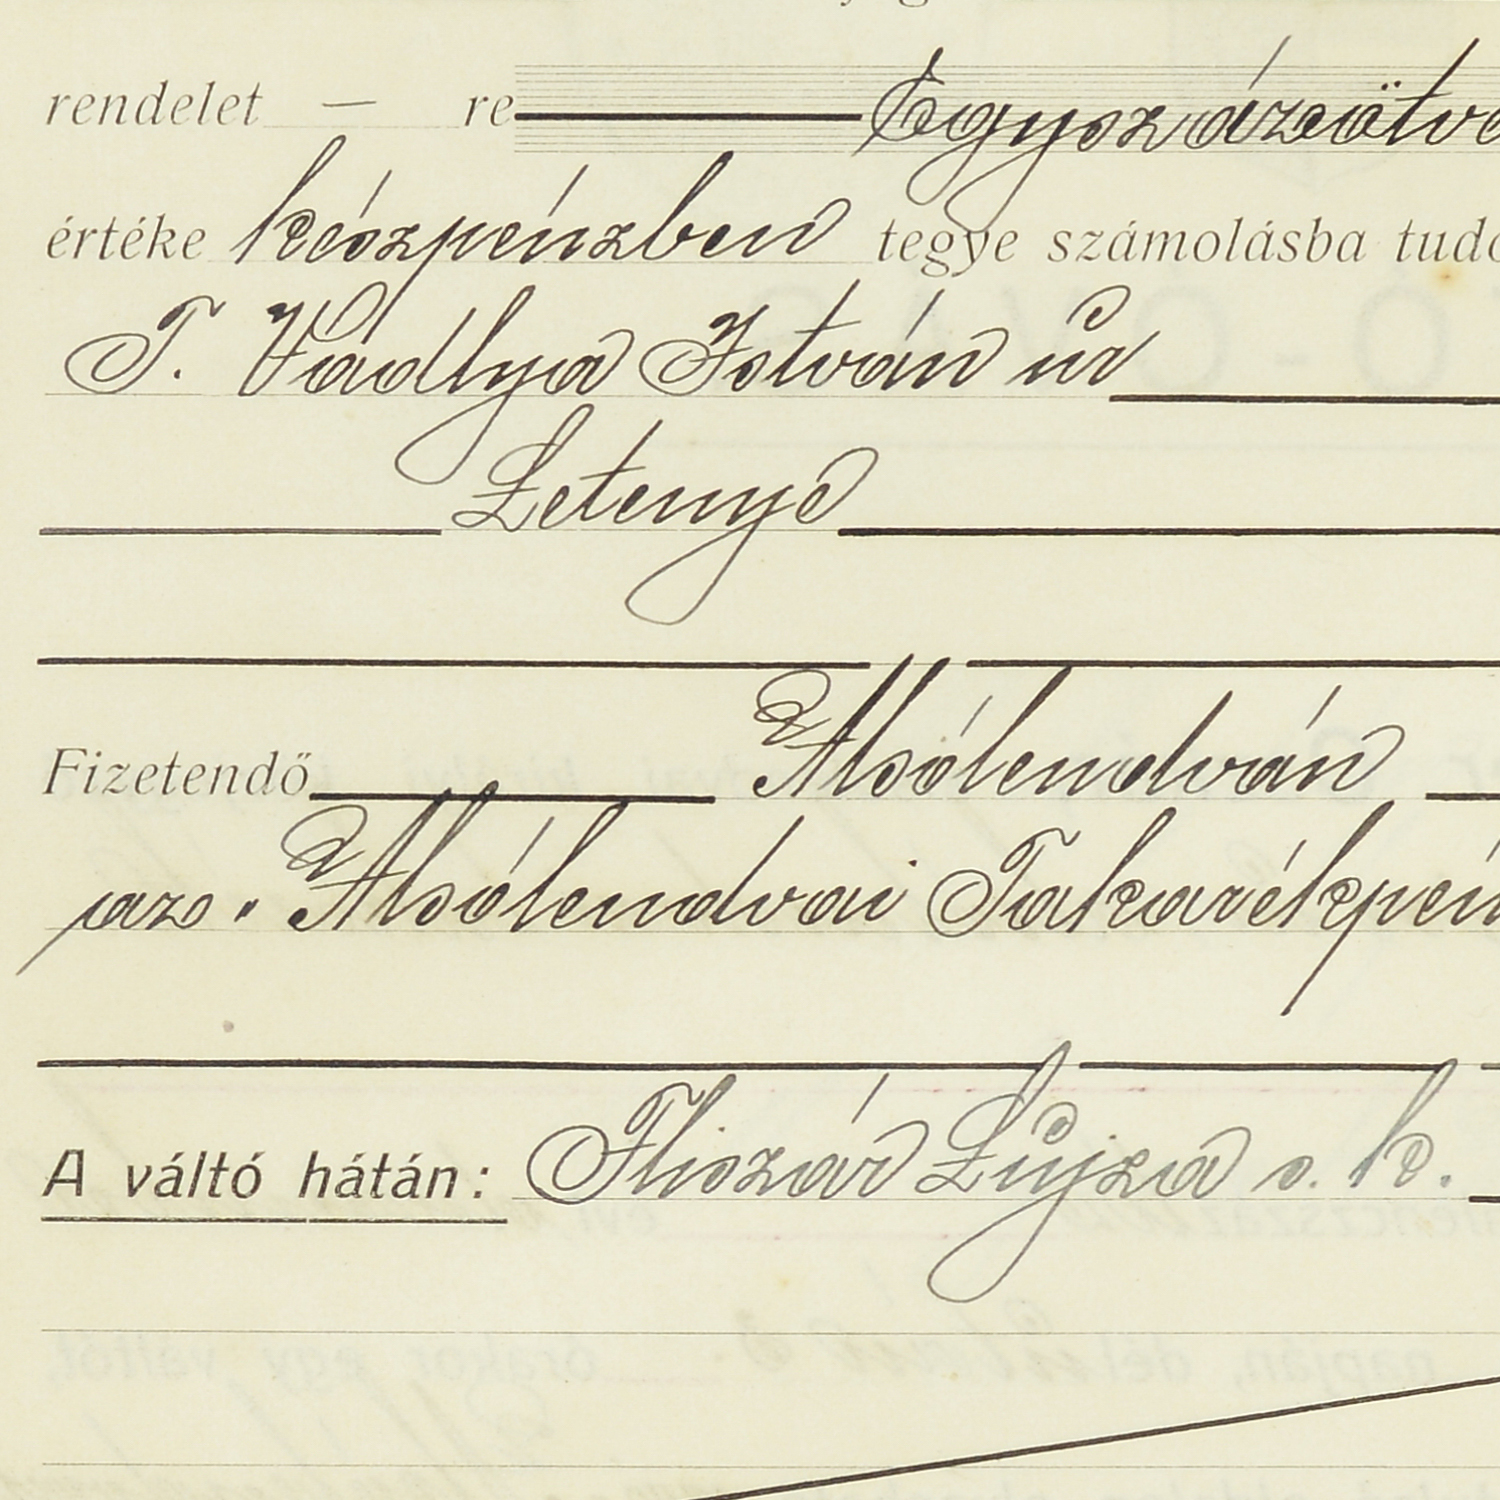 rendelet — re Egyszázötv
értéke készpénzben tegye számolásba tudó
T. Vadlya István úr
Letenye
Fizetendő Alsólendván
az "Alsólendvai Takarékpén
A váltó hátán: Fliszár Lujza s. k.